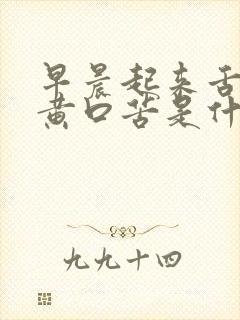 早晨起来舌
黄口苦是什
九九十四